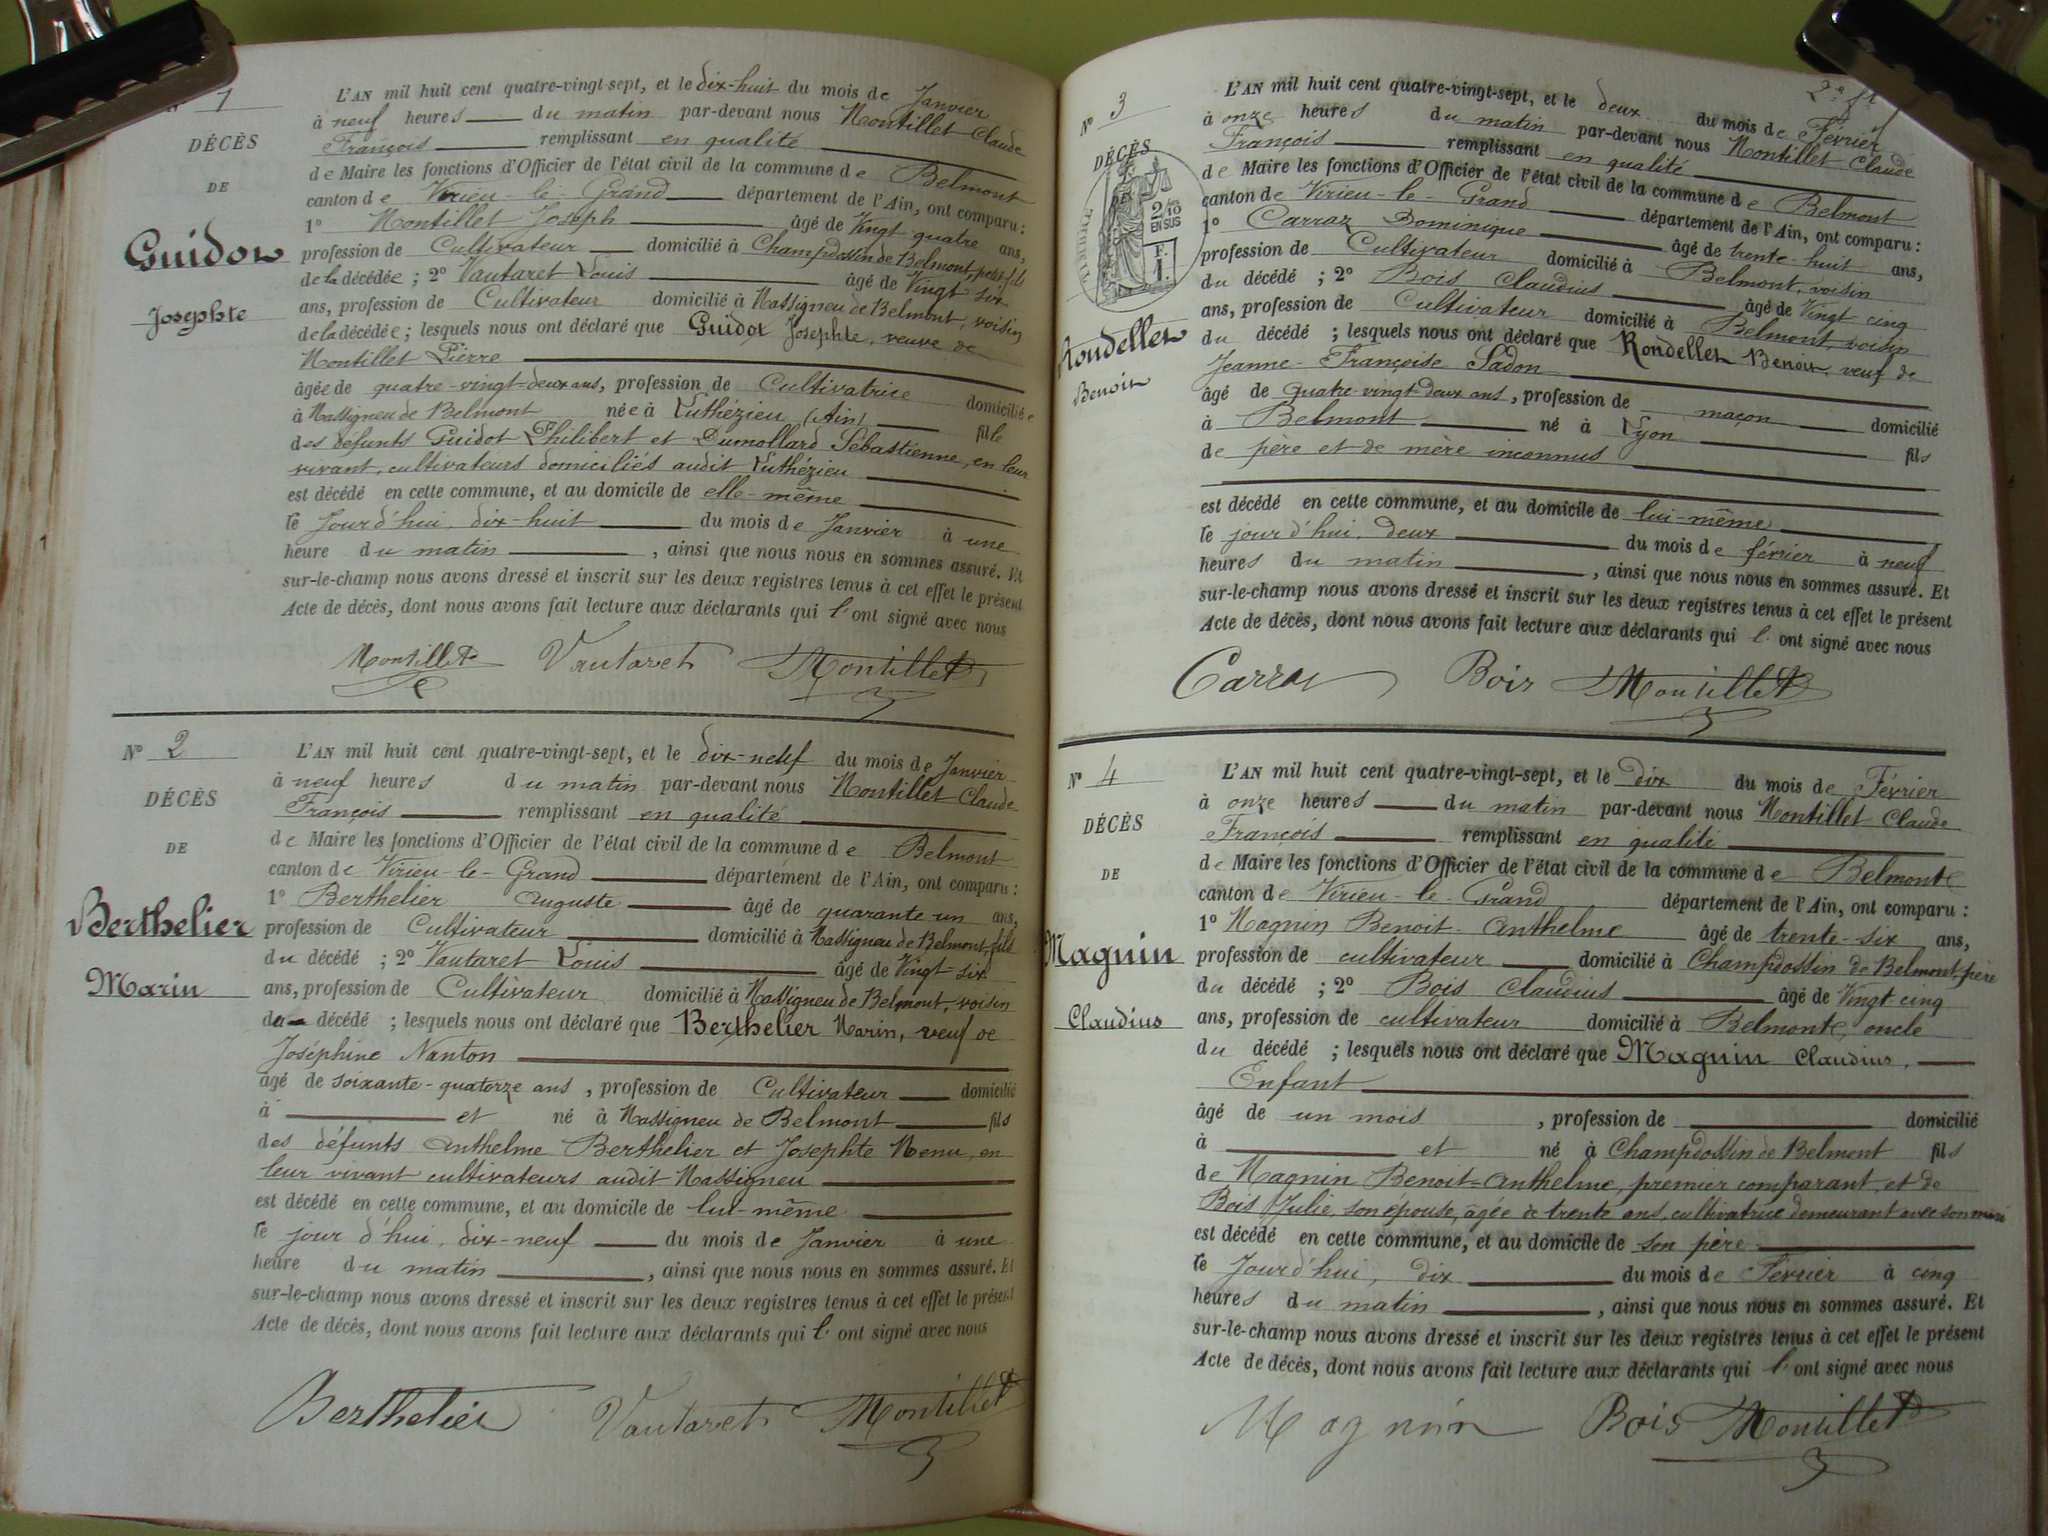 N° 1
DÉCÈS
DE
Guidot
Josephte
L'AN mil huit cent quatre-vingt-sept, et le dix-huit du mois de Janvier
à neuf heures du matin par-devant nous Montillet Claude
François remplissant en qualité
de Maire les fonctions d'Officier de l'état civil de la commune de Belmont
canton de Virieu-le-Grand département de l'Ain, ont comparu :
1° Montillet Joseph âgé de Vingt quatre ans,
profession de Cultivateur domicilié à Champdossin de Belmont, petit fils
de la décédée ; 2° Vautaret Louis âgé de Vingt six
ans, profession de Cultivateur domicilié à Massigneu de Belmont, voisin
de la décédée ; lesquels nous ont déclaré que Guidot Josephte, veuve de
Montillet Pierre
âgée de quatre-vingt-deux ans, profession de Cultivatrice domiciliée
à Massigneu de Belmont née à Luthézieu (Ain) fille
des défunts Guidot Philibert et Dumollard Sébastienne, en leur
vivant, cultivateurs domiciliés audit Luthézieu
est décédé en cette commune, et au domicile de elle-même
le Jourd'hui, dix-huit du mois de Janvier à une
heure du matin , ainsi que nous nous en sommes assuré. Et
sur-le-champ nous avons dressé et inscrit sur les deux registres tenus à cet effet le présent
Acte de décès, dont nous avons fait lecture aux déclarants qui l'ont signé avec nous
Montillet Vautaret Montillet
N° 2
DÉCÈS
DE
Berthelier
Marin
L'AN mil huit cent quatre-vingt-sept, et le dix-neuf du mois de Janvier
à neuf heures du matin par-devant nous Montillet Claude
François remplissant en qualité
de Maire les fonctions d'Officier de l'état civil de la commune de Belmont
canton de Virieu-le-Grand département de l'Ain, ont comparu :
1° Berthelier Auguste âgé de quarante-un ans,
profession de Cultivateur domicilié à Massigneu de Belmont, fils
du décédé ; 2° Vautaret Louis âgé de Vingt-six
ans, profession de Cultivateur domicilié à Massigneu de Belmont, voisin
du décédé ; lesquels nous ont déclaré que Berthelier Marin, veuf de
Joséphine Nanton
âgé de soixante-quatorze ans , profession de Cultivateur domicilié
à et né à Massigneu de Belmont fils
des défunts Anthelme Berthelier et Josephte Menu, en
leur vivant cultivateurs audit Massigneu
est décédé en cette commune, et au domicile de lui-même
le jour d'hui, dix-neuf du mois de Janvier à une
heure du matin , ainsi que nous nous en sommes assuré. Et
sur-le-champ nous avons dressé et inscrit sur les deux registres tenus à cet effet le présent
Acte de décès, dont nous avons fait lecture aux déclarants qui l'ont signé avec nous
Berthelier Vautaret Montillet
N° 3
DÉCÈS
2/10
EN SUS
F.
1.
Rondellet
Benoit
L'AN mil huit cent quatre-vingt-sept, et le deux du mois de Février
à onze heures du matin par-devant nous Montillet Claude
François remplissant en qualité
de Maire les fonctions d'Officier de l'état civil de la commune de Belmont
canton de Virieu-le-Grand département de l'Ain, ont comparu :
1° Carraz Dominique âgé de trente-huit ans,
profession de Cultivateur domicilié à Belmont, voisin
du décédé ; 2° Bois Claudius âgé de Vingt cinq
ans, profession de Cultivateur domicilié à Belmont, voisin
du décédé ; lesquels nous ont déclaré que Rondellet Benoit, veuf de
Jeanne-Françoise Sadon
âgé de quatre-vingt-deux ans, profession de maçon domicilié
à Belmont né à Lyon fils
de père et de mère inconnus
est décédé en cette commune, et au domicile de lui-même
le jour d'hui, deux du mois de février à neuf
heures du matin , ainsi que nous nous en sommes assuré. Et
sur-le-champ nous avons dressé et inscrit sur les deux registres tenus à cet effet le présent
Acte de décès, dont nous avons fait lecture aux déclarants qui l'ont signé avec nous
Carraz Bois Montillet
N° 4
DÉCÈS
DE
Magnin
Claudius
L'AN mil huit cent quatre-vingt-sept, et le dix du mois de Février
à onze heures du matin par-devant nous Montillet Claude
François remplissant en qualité
de Maire les fonctions d'Officier de l'état civil de la commune de Belmont
canton de Virieu-le-Grand département de l'Ain, ont comparu :
1° Magnin Benoit-Anthelme âgé de trente-six ans,
profession de cultivateur domicilié à Champdossin de Belmont, père
du décédé ; 2° Bois Claudius âgé de Vingt cinq
ans, profession de cultivateur domicilié à Belmont, oncle
du décédé ; lesquels nous ont déclaré que Magnin Claudius,
Enfant
âgé de un mois , profession de domicilié
à et né à Champdossin de Belmont fils
de Magnin Benoit-Anthelme, premier comparant, et de
Bois Julie, son épouse, âgée de trente ans, cultivatrice demeurant avec son mari
est décédé en cette commune, et au domicile de son père
le Jourd'hui, dix du mois de Février à cinq
heures du matin , ainsi que nous nous en sommes assuré. Et
sur-le-champ nous avons dressé et inscrit sur les deux registres tenus à cet effet le présent
Acte de décès, dont nous avons fait lecture aux déclarants qui l'ont signé avec nous
Magnin Bois Montillet